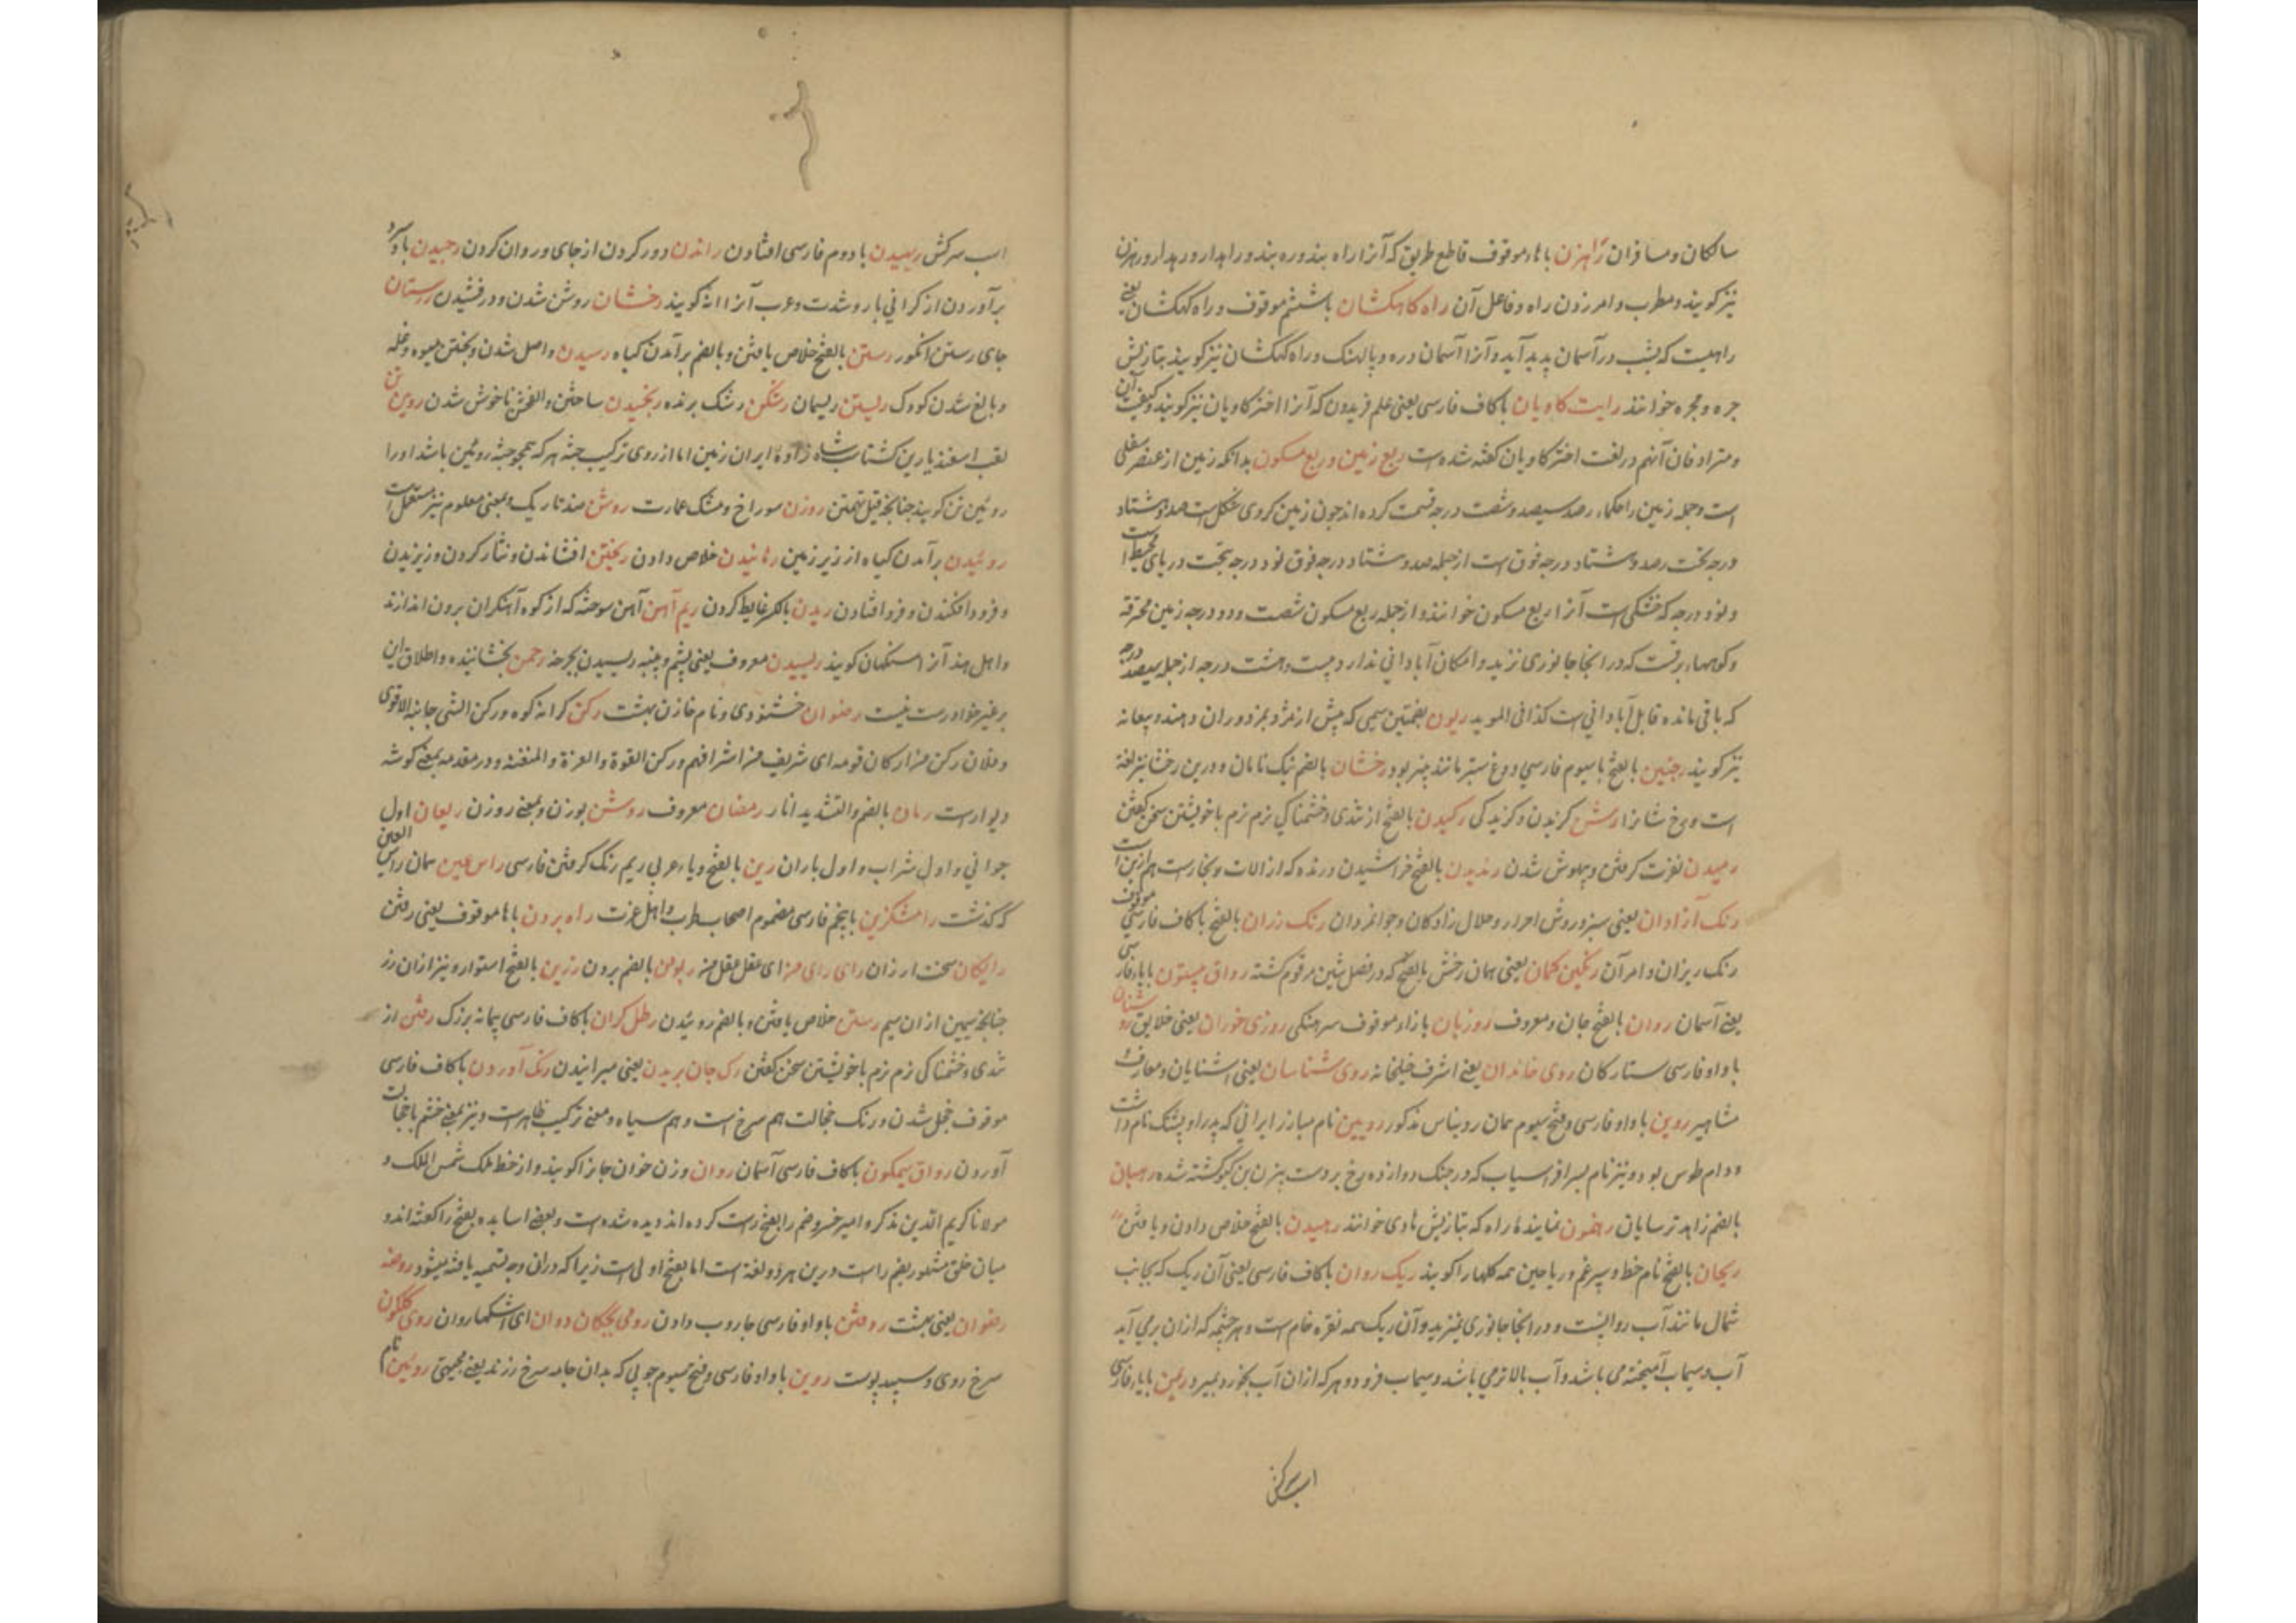 سالکان و مسافران راهزن باهاء موقوف قاطع طریق که آنرا راه بند و ره بند و راهدار و رهدار و رهزن
نیز کویند و مطرب و امر زدن راه و فاعل آن راه کاهکشان باششم موقوف و راه کهکشان یعنی
راهیست که بشب در آسمان پدید آید و آنرا آسمان دره و پالهنک و راه کهکشان نیز کویند بتازیش
جره و مجره خوانند رایت کاویان باکاف فارسی یعنی علم فریدون که آنرا اختر کاویان نیز کویند و کیفیت آن
و مترادفان آنهم در لغت اختر کاویان کفته شده است ربع زمین و ربع مسکون بدانکه زمین از عنصر سفلی
است و جمله زمین را حکماء رصد سیصد و شصت درجه قسمت کرده اند چون زمین کروی شکل است صد و هشتاد
درجه تحت رصد و هشتاد درجه فوق است از جمله صد و هشتاد درجه فوق نود درجه تحت دریای محیط است
و نود درجه که خشکی است آنرا ربع مسکون خوانند و از جمله ربع مسکون شصت و دو درجه زمین محترقه
و کوههاء برفست که در انجا جانوری نزید و امکان آبادانی ندارد بیست و هشت درجه از جمله سیصد درجه
که باقی مانده قابل آبادانی است کذا فی الموید ربون بفتحتین سیمی که پیش از مزد بمزدوران دهند و بیعانه
نیز کویند رخبین بالفتح باسیوم فارسی دوغ ستبر مانند پنیر بود رخشان بالضم نیک تابان و درین رخشا نیز لغة
است و رخ شانرا رسش کزیدن و کزیدکی رکیدن بالفتح از تندی و خشمناکی نرم نرم باخویشتن سخن کفتن
رمیدن نفرت کرفتن و بیهوش شدن رندیدن بالفتح خراشیدن و رنده که از الات و نجارست هم ازین است
رنک آزادان یعنی سبز و روش احرار و حلال زادکان و جوانمردان رنک رزان بالفتح باکاف فارسی موقوف
رنک ریزان و امر آن رنکین کمان یعنی همان رخش بالفتح که در فصل شین مرقوم کشته رواق بیستون بایاء فارسی
یعنی آسمان روان بالفتح جان و معروف روزبان بازاء موقوف سرهنکی روزی خوران یعنی خلایق روشنان
باواو فارسی ستارکان روی خاندان یعنی اشرف خیلخانه روی شناسان یعنی اشنایان و معارف و
مشاهیر روین باواو فارسی و فتح سیوم همان رویناس مذکور رویین نام مبارز ایرانی که پدر او پشنک نام داشت
و دام طوس بود و نیز نام پسر افراسیاب که در جنک دوازده رخ بر دست بیژن بن کیو کشته شده رهبان
بالضم زاهد ترسایان رهنمون نمایندهٔ راه که بتازیش هادی خوانند رهیدن بالفتح خلاص دادن و یافتن
ریحان بالفتح نام خط و سپرغم و ریاحین همه کلها را کویند ریک روان باکاف فارسی یعنی آن ریک که بجانب
شمال مانند آب روانست و در انجا جانوری نمیزید و آن ریک همه نقره خام است و هر چشمه که از ان برمی آید
آب و سیماب آمیخته می باشد و آب بالاتر می باشد و سیماب فرود و هر که از ان آب بخورد بمیرد ریمن بایاء فارسی
اسب سرکش
اسب سرکش ریپیدن با دوم فارسی افتادن راندن دور کردن از جای و روان کردن رجیدن باد سرد
برآوردن از کرانی بار و شدت و عرب آنرا انه کویند رخشان روشن شدن و درخشیدن رستان
جای رستن انکور رستن بالفتح خلاص یافتن و بالضم برآمدن کیاه رسیدن واصل شدن و پختن میوه و غله
و بالغ شدن کودک ریستن ریسمان رشکن رشک برنده رنجیدن ساختن و الفختن ناخوش شدن رویین تن
لقب اسفندیار بن کشتاسب شاه زادهٔ ایران زمین اما از روی ترکیب جثه هر که همچو جثه روئین باشد او را
روئین تن کویند چنانچه قیل تهمتن روزن سوراخ و مشک عمارت روشن ضد تاریک و بمعنی معلوم نیز مستعمل است
روئیدن برآمدن کیاه از زیر زمین رهانیدن خلاص دادن ریختن افشاندن و نثار کردن و ریزیدن
و فرود افکندن و فرو افتادن ریدن بالکسر غایط کردن ریم آهن آهن سوخته که از کوه آهنکران برون اندازند
و اهل هند آنرا سنکهان کویند ریسیدن معروف یعنی پشم و پنبه ریسیدن بچرخه رحمن بخشاینده و اطلاق این
بر غیر خدا درست نیست رضوان خشنودی و نام خازن بهشت رکن کرانه کوه و رکن الشی جانبه الاقوی
و فلان رکن من ارکان قومه ای شریف من اشرافهم و رکن القوة و العزة و المنعة و در مقدمه بمعنی کوشه
دیوارست رمان بالضم و التشدید انار رمضان معروف روشن بوزن و بمعنی روزن ریعان اول
جوانی و اول شراب و اول باران رین بالفتح و یاء عربی ریم زنک کرفتن فارسی راس عین همان راس العین
که کذشت رامشکزین باپنجم فارسی مضموم اصحاب طرب و اهل عزت راه برون باهاء موقوف یعنی رفتن
رایکان سخت ارزان رای رای من ای عقل عقل من ربودن بالضم بردن رزین بالفتح استوار و نیز از ان رز
چنانچه سیمین از ان سیم رستن خلاص یافتن و بالضم روئیدن رطل کران باکاف فارسی پیمانه بزرک رفتن از
تندی و خشمناکی نرم نرم باخویشتن سخن کفتن رک جان بریدن یعنی میرانیدن رنک آوردن باکاف فارسی
موقوف خجل شدن و رنک خجالت هم سرخ است و هم سیاه و معنی ترکیب ظاهرست و نیز بمعنی خشم باخجالت
آوردن رواق نیمکون باکاف فارسی آسمان روان وزن خوان جانرا کویند و از خط ملک شمس الملک و
مولانا کریم الدین مذکر و امیر خسرو ضم را بفتح راست کرده اند دیده شده است و بعضی اساتذه بفتح را کفته اند و
میان خلق مشهور بضم راست و درین هر دو لغة است اما بفتح اولی است زیرا که در ان وجه تسمیه یافته میشود روضه
رضوان یعنی بهشت روفتن باواو فارسی جاروب دادن روی بچکان دوان ای اشکها روان روی کلکون
سرخ روی و سپید پوست روین باواو فارسی و فتح سیوم چوبی که بدان جامه سرخ رزند یعنی مجیهتی روئین نام